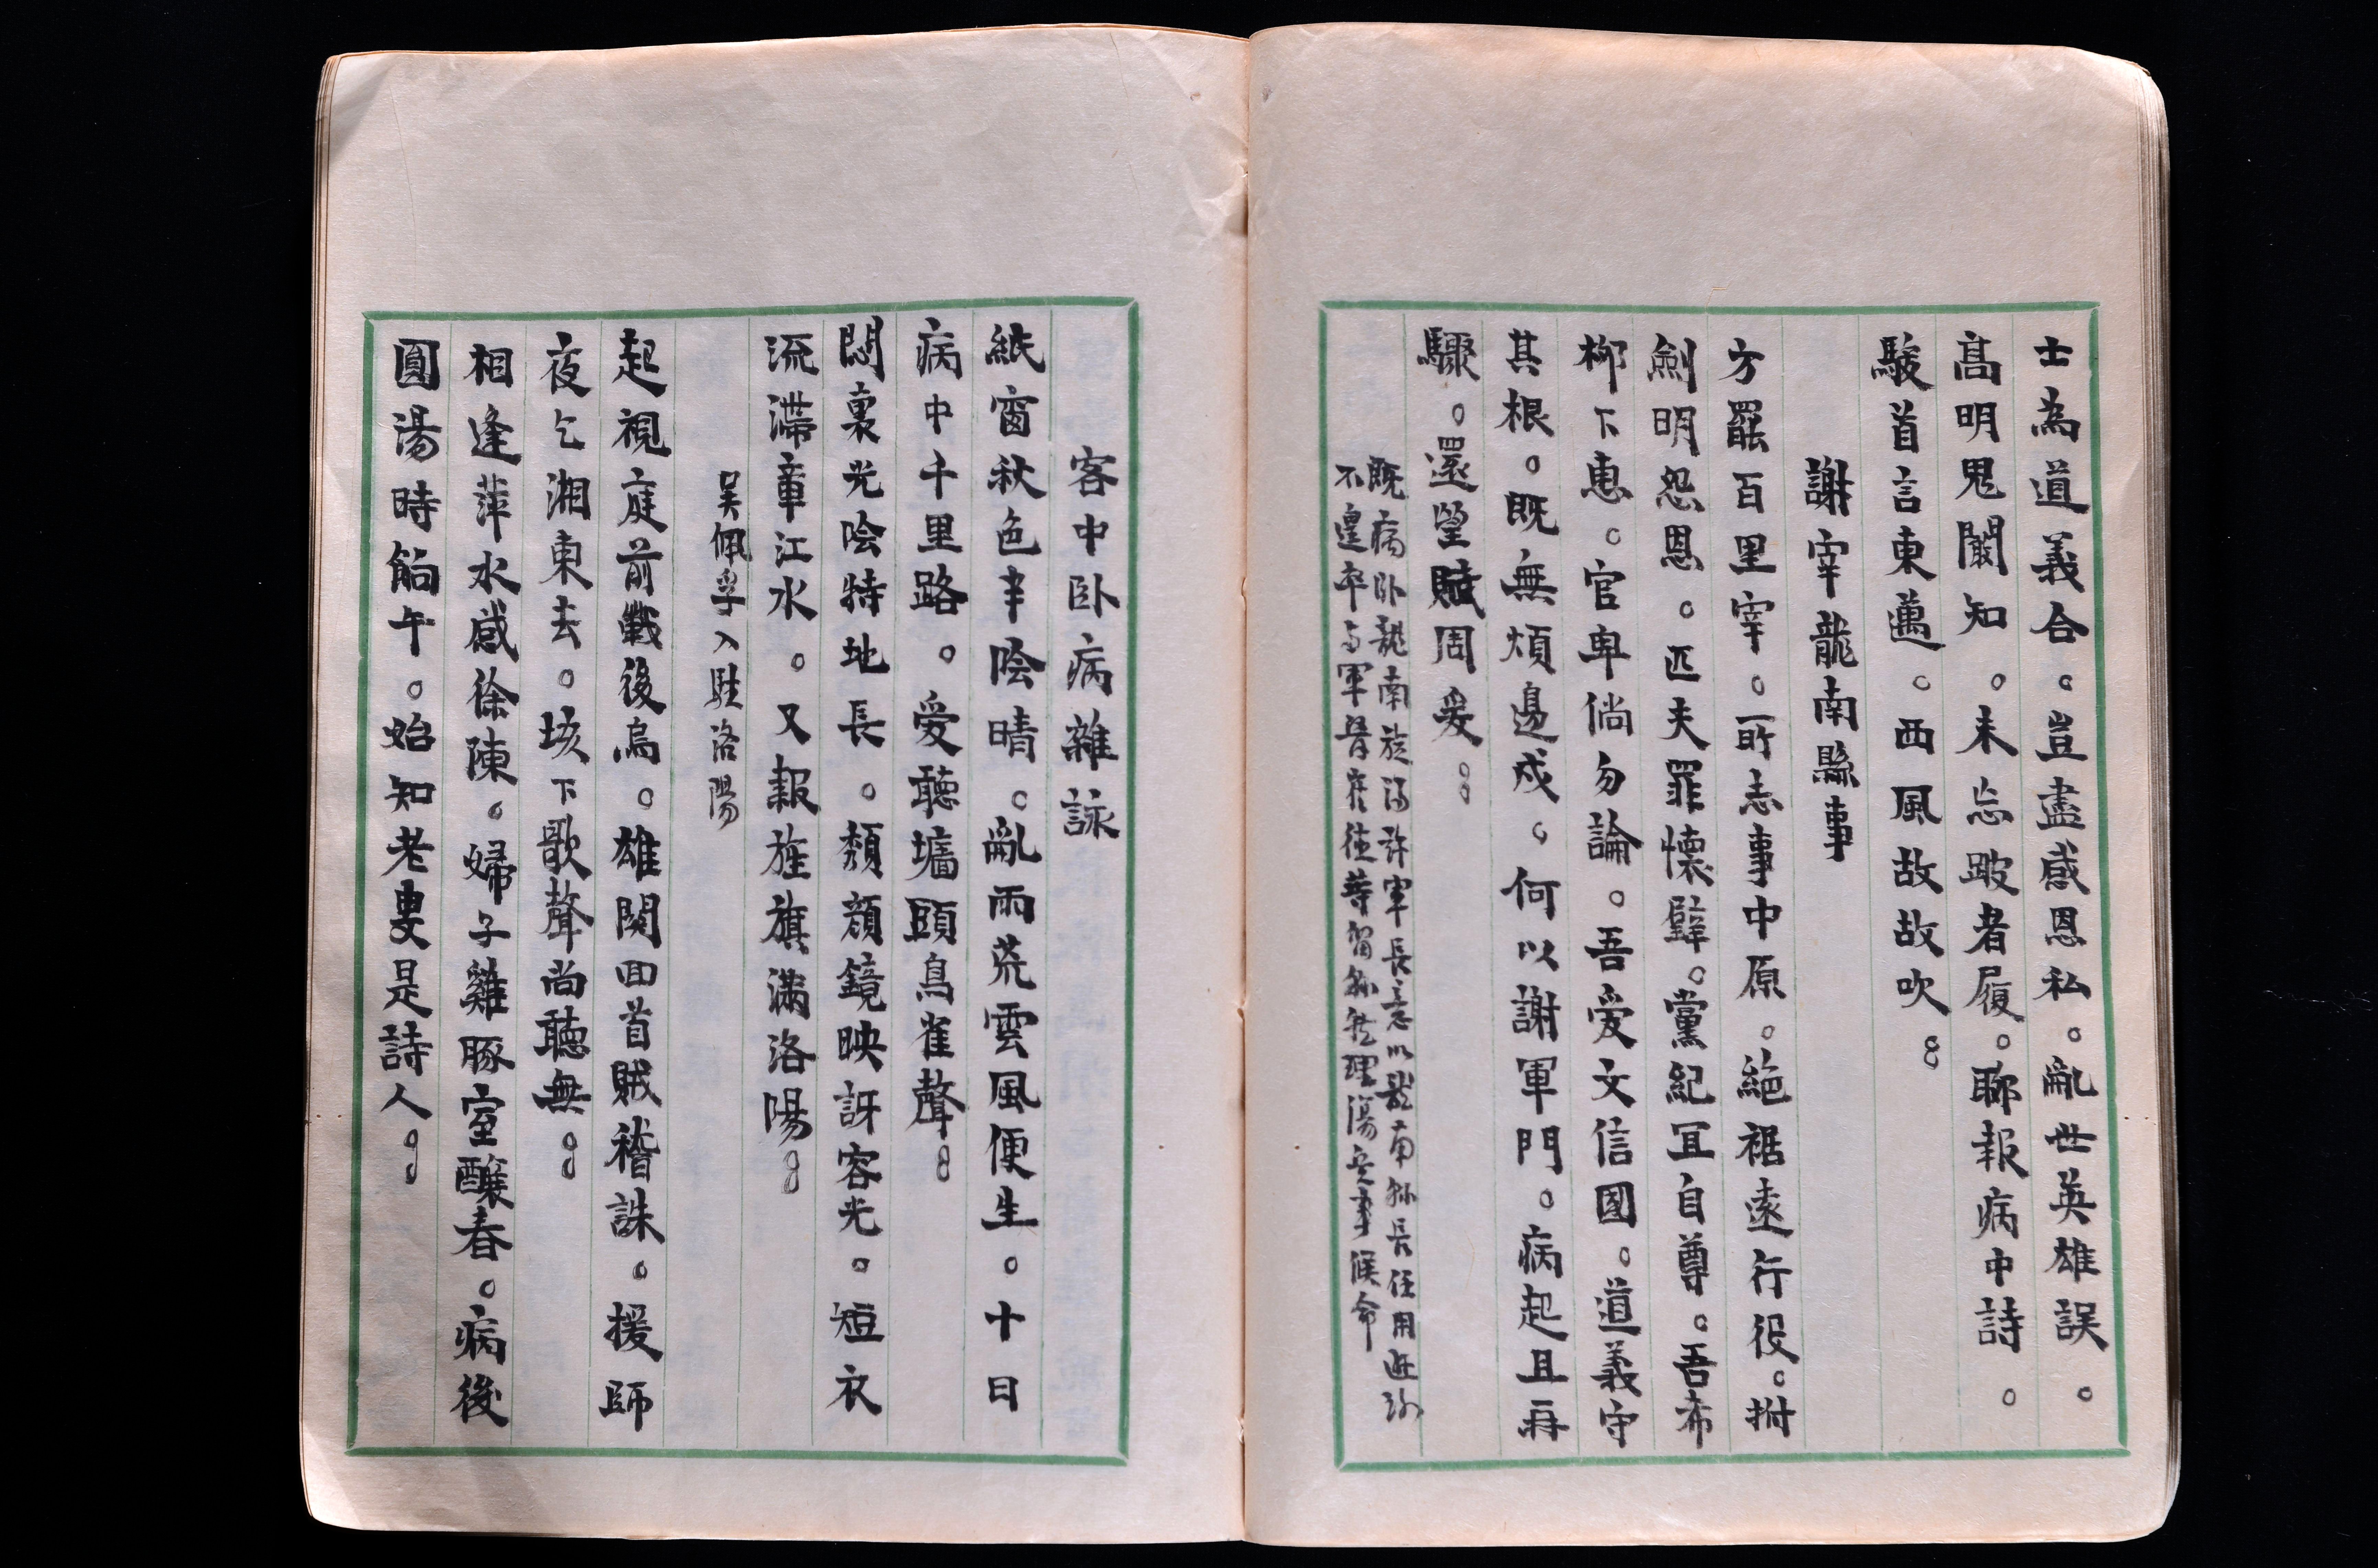 士為道義合。豈盡感恩私。亂世英雄誤。
高明鬼闞知。未忘跛者履。聊報病中詩。
駿首言東邁。西風故故吹。
謝宰龍南縣事
方罷百里宰。所志事中原。絕裾遠行役。拊
劍明怨恩。匹夫罪懷璧。黨紀冝自尊。吾希
柳下惠。官卑倘勿論。吾爱文信國。道義守
其根。既無煩邊戍。何以謝軍門。病起且再
驟。還望賊周爰。
既病臥龍南旋得許軍長意以龍南縣長任用進行
不遑卒与軍晉從往等留縣經理傷兵事候命
客中卧病雜詠
紙窗秋色半陰晴。亂雨荒雲風便生。十日
病中千里路。愛聽墻頭鳥雀聲。
悶裏光陰特地長。頹顏鏡映訝容光。短衣
流滯章江水。又報旌旗滿洛陽。
吴佩孚入駐洛陽
起視庭前戰後烏。雄関回首賊稽誅。援師
夜乞湘東去。垓下歌聲尚聽無。
相逢萍水感徐陳。婦子雞豚室釀春。病後
圓湯時餉午。始知老嫗是詩人。